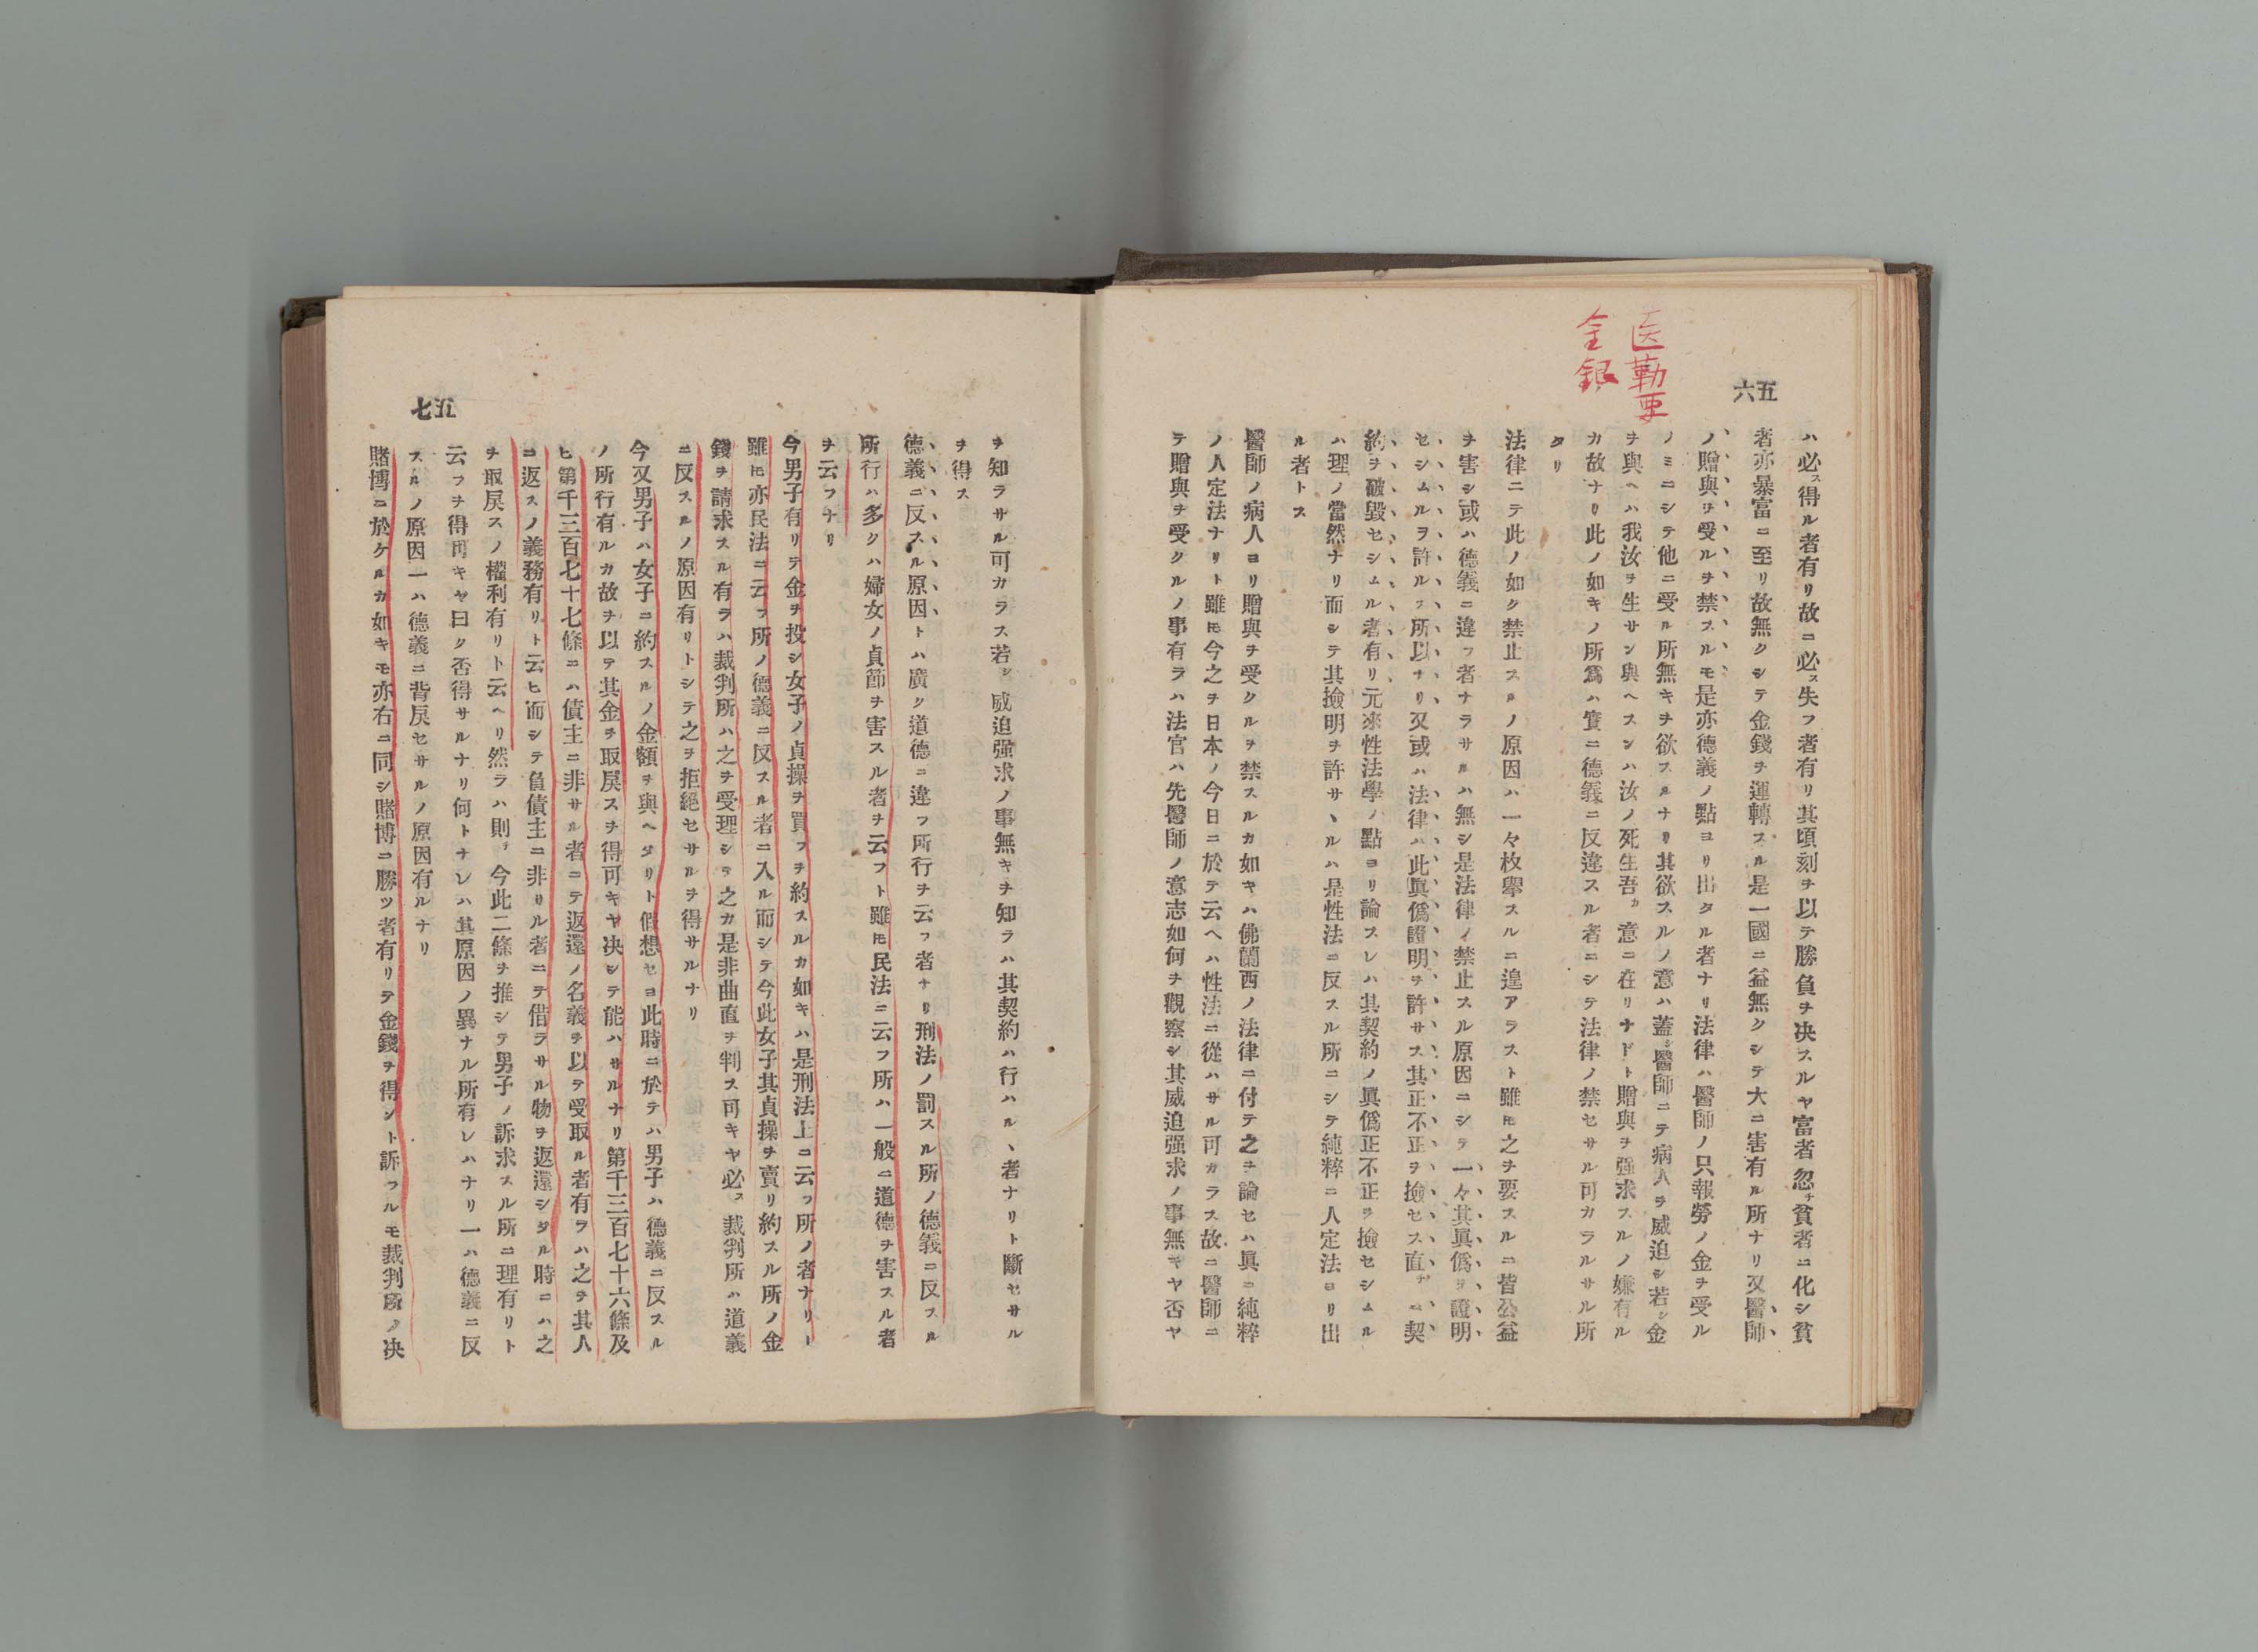 五六
医勒要
金銀
ハ必ス得ル者有リ故ニ必ス失フ者有リ其頃刻ヲ以テ勝負ヲ决スルヤ富者忽チ貧者ニ化シ貧
者亦暴富ニ至リ故無クシテ金錢ヲ運轉スル是一國ニ益無クシテ大ニ害有ル所ナリ又醫師
ノ贈與ヲ受ルヲ禁スルモ是亦德義ノ點ヨリ出タル者ナリ法律ハ醫師ノ只報勞ノ金ヲ受ル
ノミニシテ他ニ受ル所無キヲ欲スルナリ其欲スルノ意ハ蓋シ醫師ニテ病人ヲ威迫シ若シ金
ヲ與ヘハ我汝ヲ生サン與ヘスンハ汝ノ死生吾カ意ニ在リナドト贈與ヲ强求スルノ嫌有ル
カ故ナリ此ノ如キノ所爲ハ實ニ德義ニ反違スル者ニシテ法律ノ禁セサル可カラルサル所
タリ
法律ニテ此ノ如ク禁止スルノ原因ハ一々枚擧スルニ遑アラスト雖𪜈之ヲ要スルニ皆公益
ヲ害シ或ハ德義ニ違フ者ナラサルハ無シ是法律ノ禁止スル原因ニシテ一々其眞僞ヲ證明
セシムルヲ許ルス所以ナリ又或ハ法律ハ此眞僞證明ヲ許サス其正不正ヲ撿セス直チニ契
約ヲ破毀セシムル者有リ元來性法學ノ點ヨリ論スレハ其契約ノ眞僞正不正ヲ撿セシムル
ハ理ノ當然ナリ而シテ其撿明ヲ許サヽルハ是性法ニ反スル所ニシテ純粹ニ人定法ヨリ出
ル者トス
醫師ノ病人ヨリ贈與ヲ受クルヲ禁スルカ如キハ佛蘭西ノ法律ニ付テ之ヲ論セハ眞ニ純粹
ノ人定法ナリト雖𪜈今之ヲ日本ノ今日ニ於テ云ヘハ性法ニ從ハサル可カラス故ニ醫師ニ
テ贈與ヲ受クルノ事有ラハ法官ハ先醫師ノ意志如何ヲ觀察シ其威迫强求ノ事無キヤ否ヤ
五七
ヲ知ラサル可カラス若シ威迫强求ノ事無キヲ知ラハ其契約ハ行ハルヽ者ナリト斷セサル
ヲ得ス
德義ニ反スル原因トハ廣ク道德ニ違フ所行ヲ云フ者ナリ刑法ノ罰スル所ノ德義ニ反スル
所行ハ多クハ婦女ノ貞節ヲ害スル者ヲ云フト雖𪜈民法ニ云フ所ハ一般ニ道德ヲ害スル者
ヲ云フナリ
今男子有リテ金ヲ投シ女子ノ貞操ヲ買フヲ約スルカ如キハ是刑法上ニ云フ所ノ者ナリト
雖𪜈亦民法ニ云フ所ノ德義ニ反スル者ニ入ル而シテ今此女子其貞操ヲ賣リ約スル所ノ金
錢ヲ請求スル有ラハ裁判所ハ之ヲ受理シテ之カ是非曲直ヲ判ス可キヤ必ス裁判所ハ道義
ニ反スルノ原因有リトシテ之ヲ拒絕セサルヲ得サルナリ
今又男子ハ女子ニ約スルノ金額ヲ與ヘタリト假想セヨ此時ニ於テハ男子ハ德義ニ反スル
ノ所行有ルカ故ヲ以テ其金ヲ取戻スヲ得可キヤ决シテ能ハサルナリ第千三百七十六條及
ヒ第千三百七十七條ニハ債主ニ非サル者ニテ返還ノ名義ヲ以テ受取ル者有ラハ之ヲ其人
ニ返スノ義務有リト云ヒ而シテ負債主ニ非サル者ニテ借ラサル物ヲ返還シタル時ニハ之
ヲ取戻スノ權利有リト云ヘリ然ラハ則チ今此二條ヲ推シテ男子ノ訴求スル所ニ理有リト
云フヲ得可キヤ曰ク否得サルナリ何トナレハ其原因ノ異ナル所有レハナリ一ハ德義ニ反
スルノ原因一ハ德義ニ背戻セサルノ原因有ルナリ
賭博ニ於ケルカ如キモ亦右ニ同シ賭博ニ勝ツ者有リテ金錢ヲ得ント訴フルモ裁判所ノ决